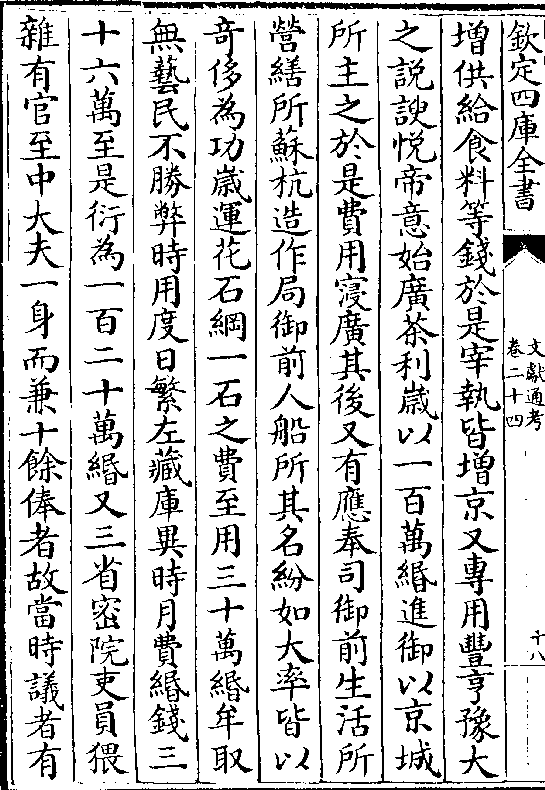 欽定四庫全書
文獻通考
卷二十四
十八
增供給食料等錢於是宰執皆增京又專用豐亨豫大
之説諛悦帝意始廣茶利嵗以一百萬緡進御以京城
所主之於是費用寖廣其後又有應奉司御前生活所
營繕所蘇杭造作局御前人船所其名紛如大率皆以
奇侈為功嵗運花石綱一石之費至用三十萬緡牟取
無藝民不勝弊時用度日繁左藏庫異時月費緡錢三
十六萬至是衍為一百二十萬緡又三省宻院吏員猥
雜有官至中大夫一身而兼十餘俸者故當時議者有